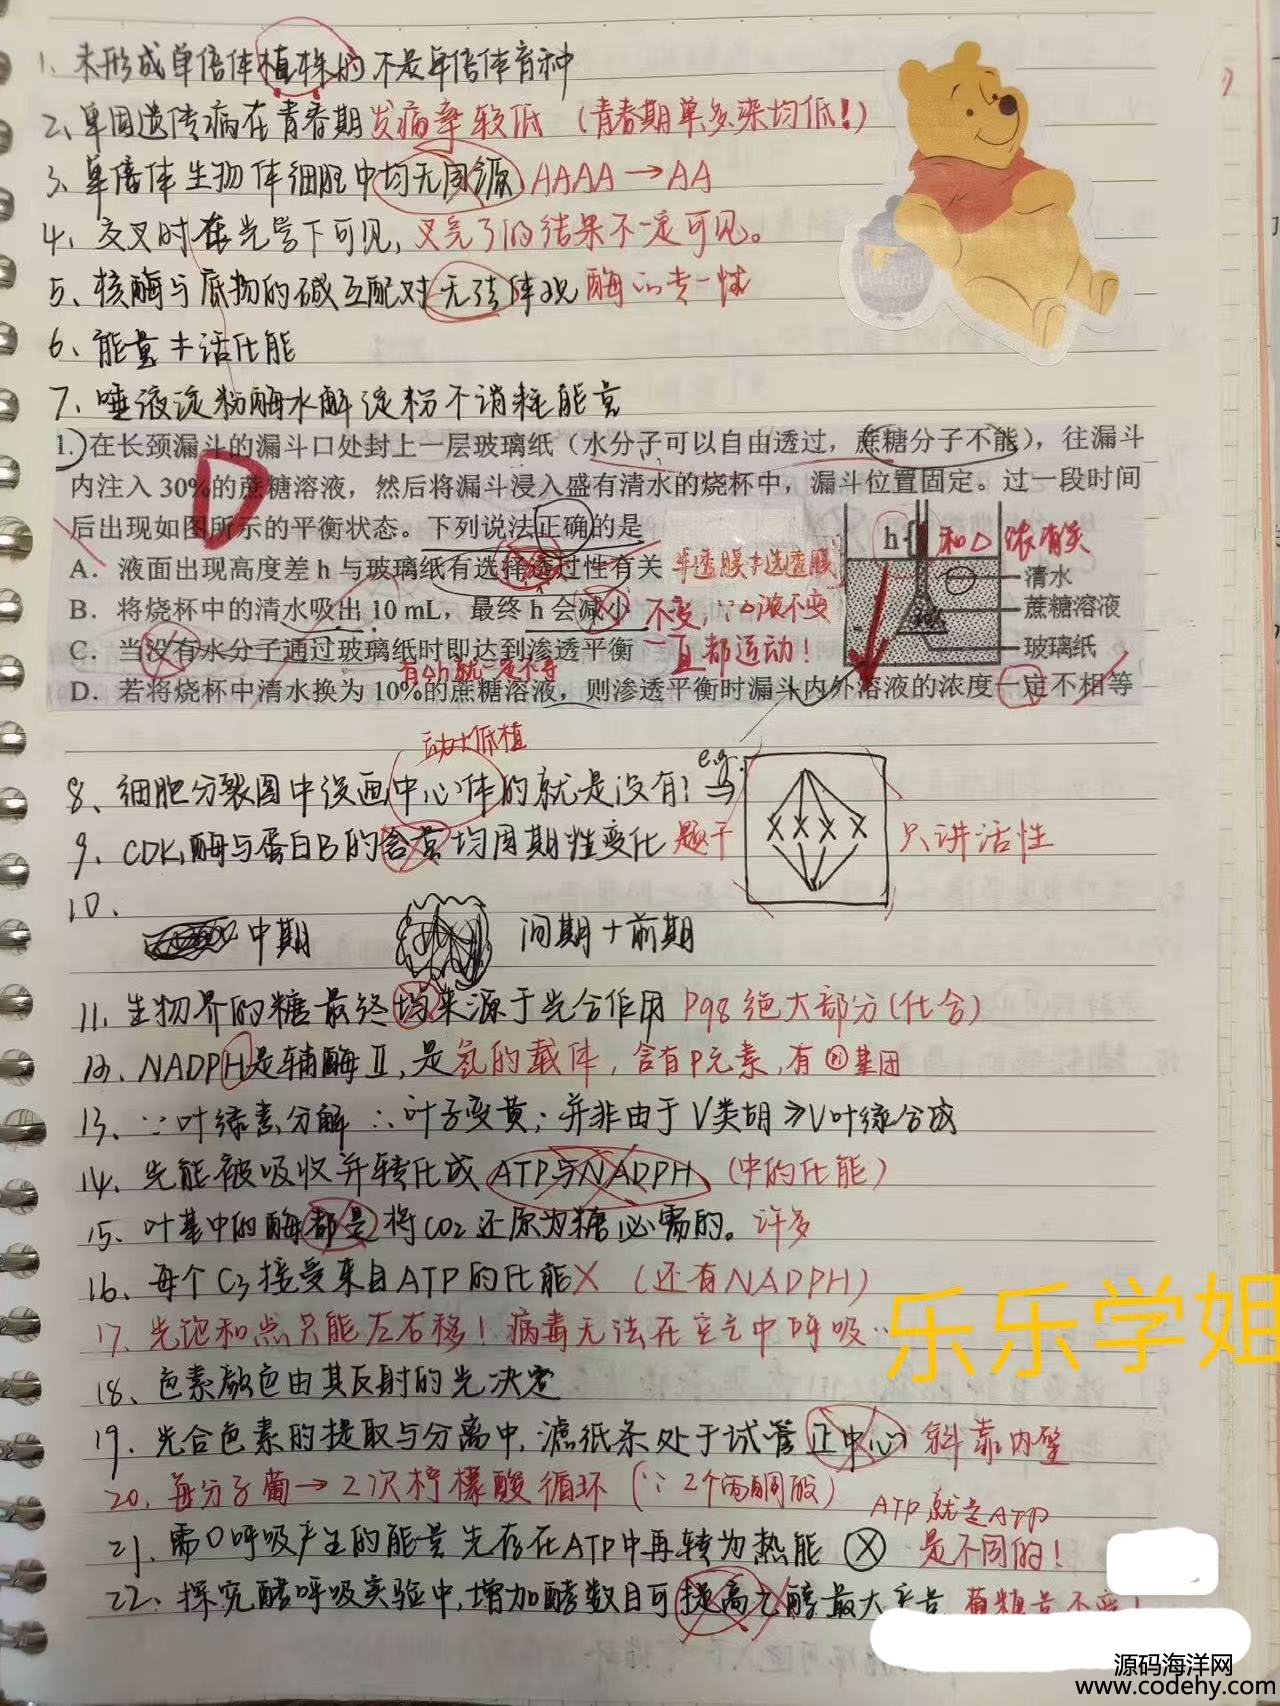 1、未形成单倍体植株的不是单倍体育种
2、单因遗传病在青春期发病率较低（青春期单多染均低！）
3、单倍体生物体细胞中均无同源 AAAA→AA
4、交叉时在光学下可见，叉完了的结果不一定可见。
5、核酶与底物的碱互配对无法体现酶的专一性
6、能量≠活化能
7、唾液淀粉酶水解淀粉不消耗能量
1. 在长颈漏斗的漏斗口处封上一层玻璃纸（水分子可以自由透过，蔗糖分子不能），往漏斗
内注入30%的蔗糖溶液，然后将漏斗浸入盛有清水的烧杯中，漏斗位置固定。过一段时间
后出现如图所示的平衡状态。下列说法正确的是
D
A．液面出现高度差 h 与玻璃纸有选择透过性有关 半透膜≠选透膜
B．将烧杯中的清水吸出 10 mL，最终 h 会减小 不变，∵△浓不变
C．当没有水分子通过玻璃纸时即达到渗透平衡 一直都运动！
有△h就一定不等
D．若将烧杯中清水换为 10%的蔗糖溶液，则渗透平衡时漏斗内外溶液的浓度一定不相等
h 和△浓有关
清水
蔗糖溶液
玻璃纸
动+低植
8、细胞分裂图中没画中心体的就是没有！⇒ e.g.
9、CDK₁酶与蛋白B的含量均周期性变化 题干只讲活性
10、
中期 间期+前期
11、生物界的糖最终均来源于光合作用 P98 绝大部分(化合)
12、NADPH是辅酶Ⅱ，是氢的载体，含有P元素，有㊉基团
13、∵叶绿素分解∴叶子变黄；并非由于V类胡≥V叶绿合成
14、光能被吸收并转化成ATP与NADPH（中的化能）
15、叶基中的酶都是将CO₂还原为糖必需的。许多
16、每个C₃接受来自ATP的化能X（还有NADPH）
17、光饱和点只能左右移！病毒无法在空气中呼吸..
乐乐学姐
18、色素颜色由其反射的光决定
19、光合色素的提取与分离中，滤纸条处于试管正中心 斜靠内壁
20、每分子葡→2次柠檬酸循环（∵2个丙酮酸）
ATP就是ATP
21、需O呼吸产生的能量先存在ATP中再转为热能 ⊗ 是不同的！
22、探究酵呼吸实验中，增加酵数目可提高乙醇最大产量 葡糖量不变！
源码海洋网
www.codehy.com